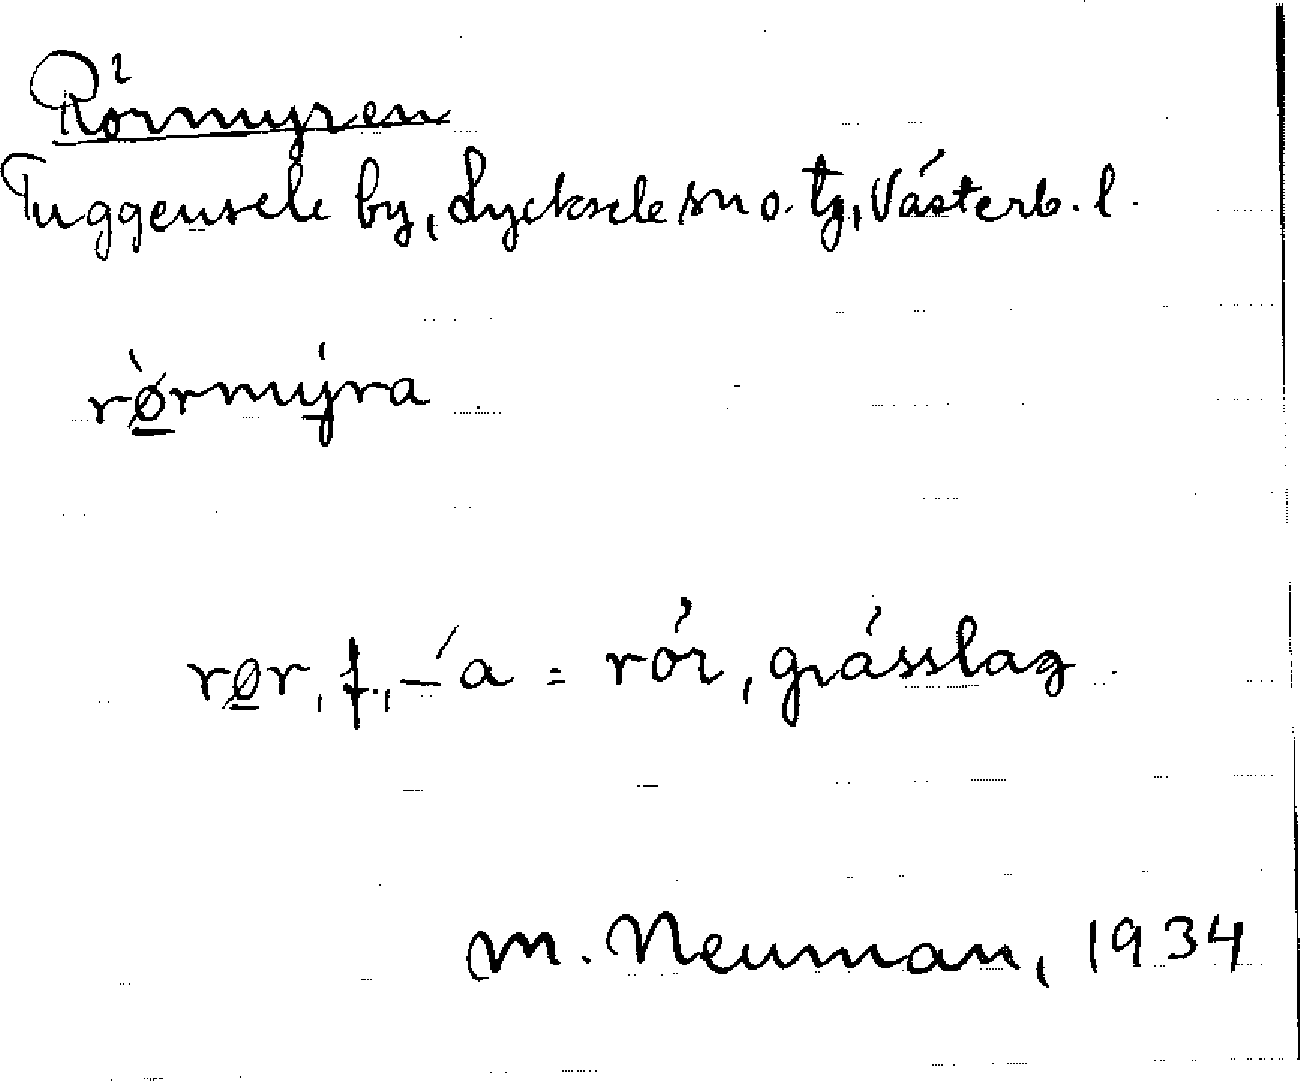 Rörmyren
Tuggensele by, Lycksele sn o. tg, Västerb. l.
rø̀rmýra
rør, f., –´a = rör, grässlag.
M. Neuman, 1934